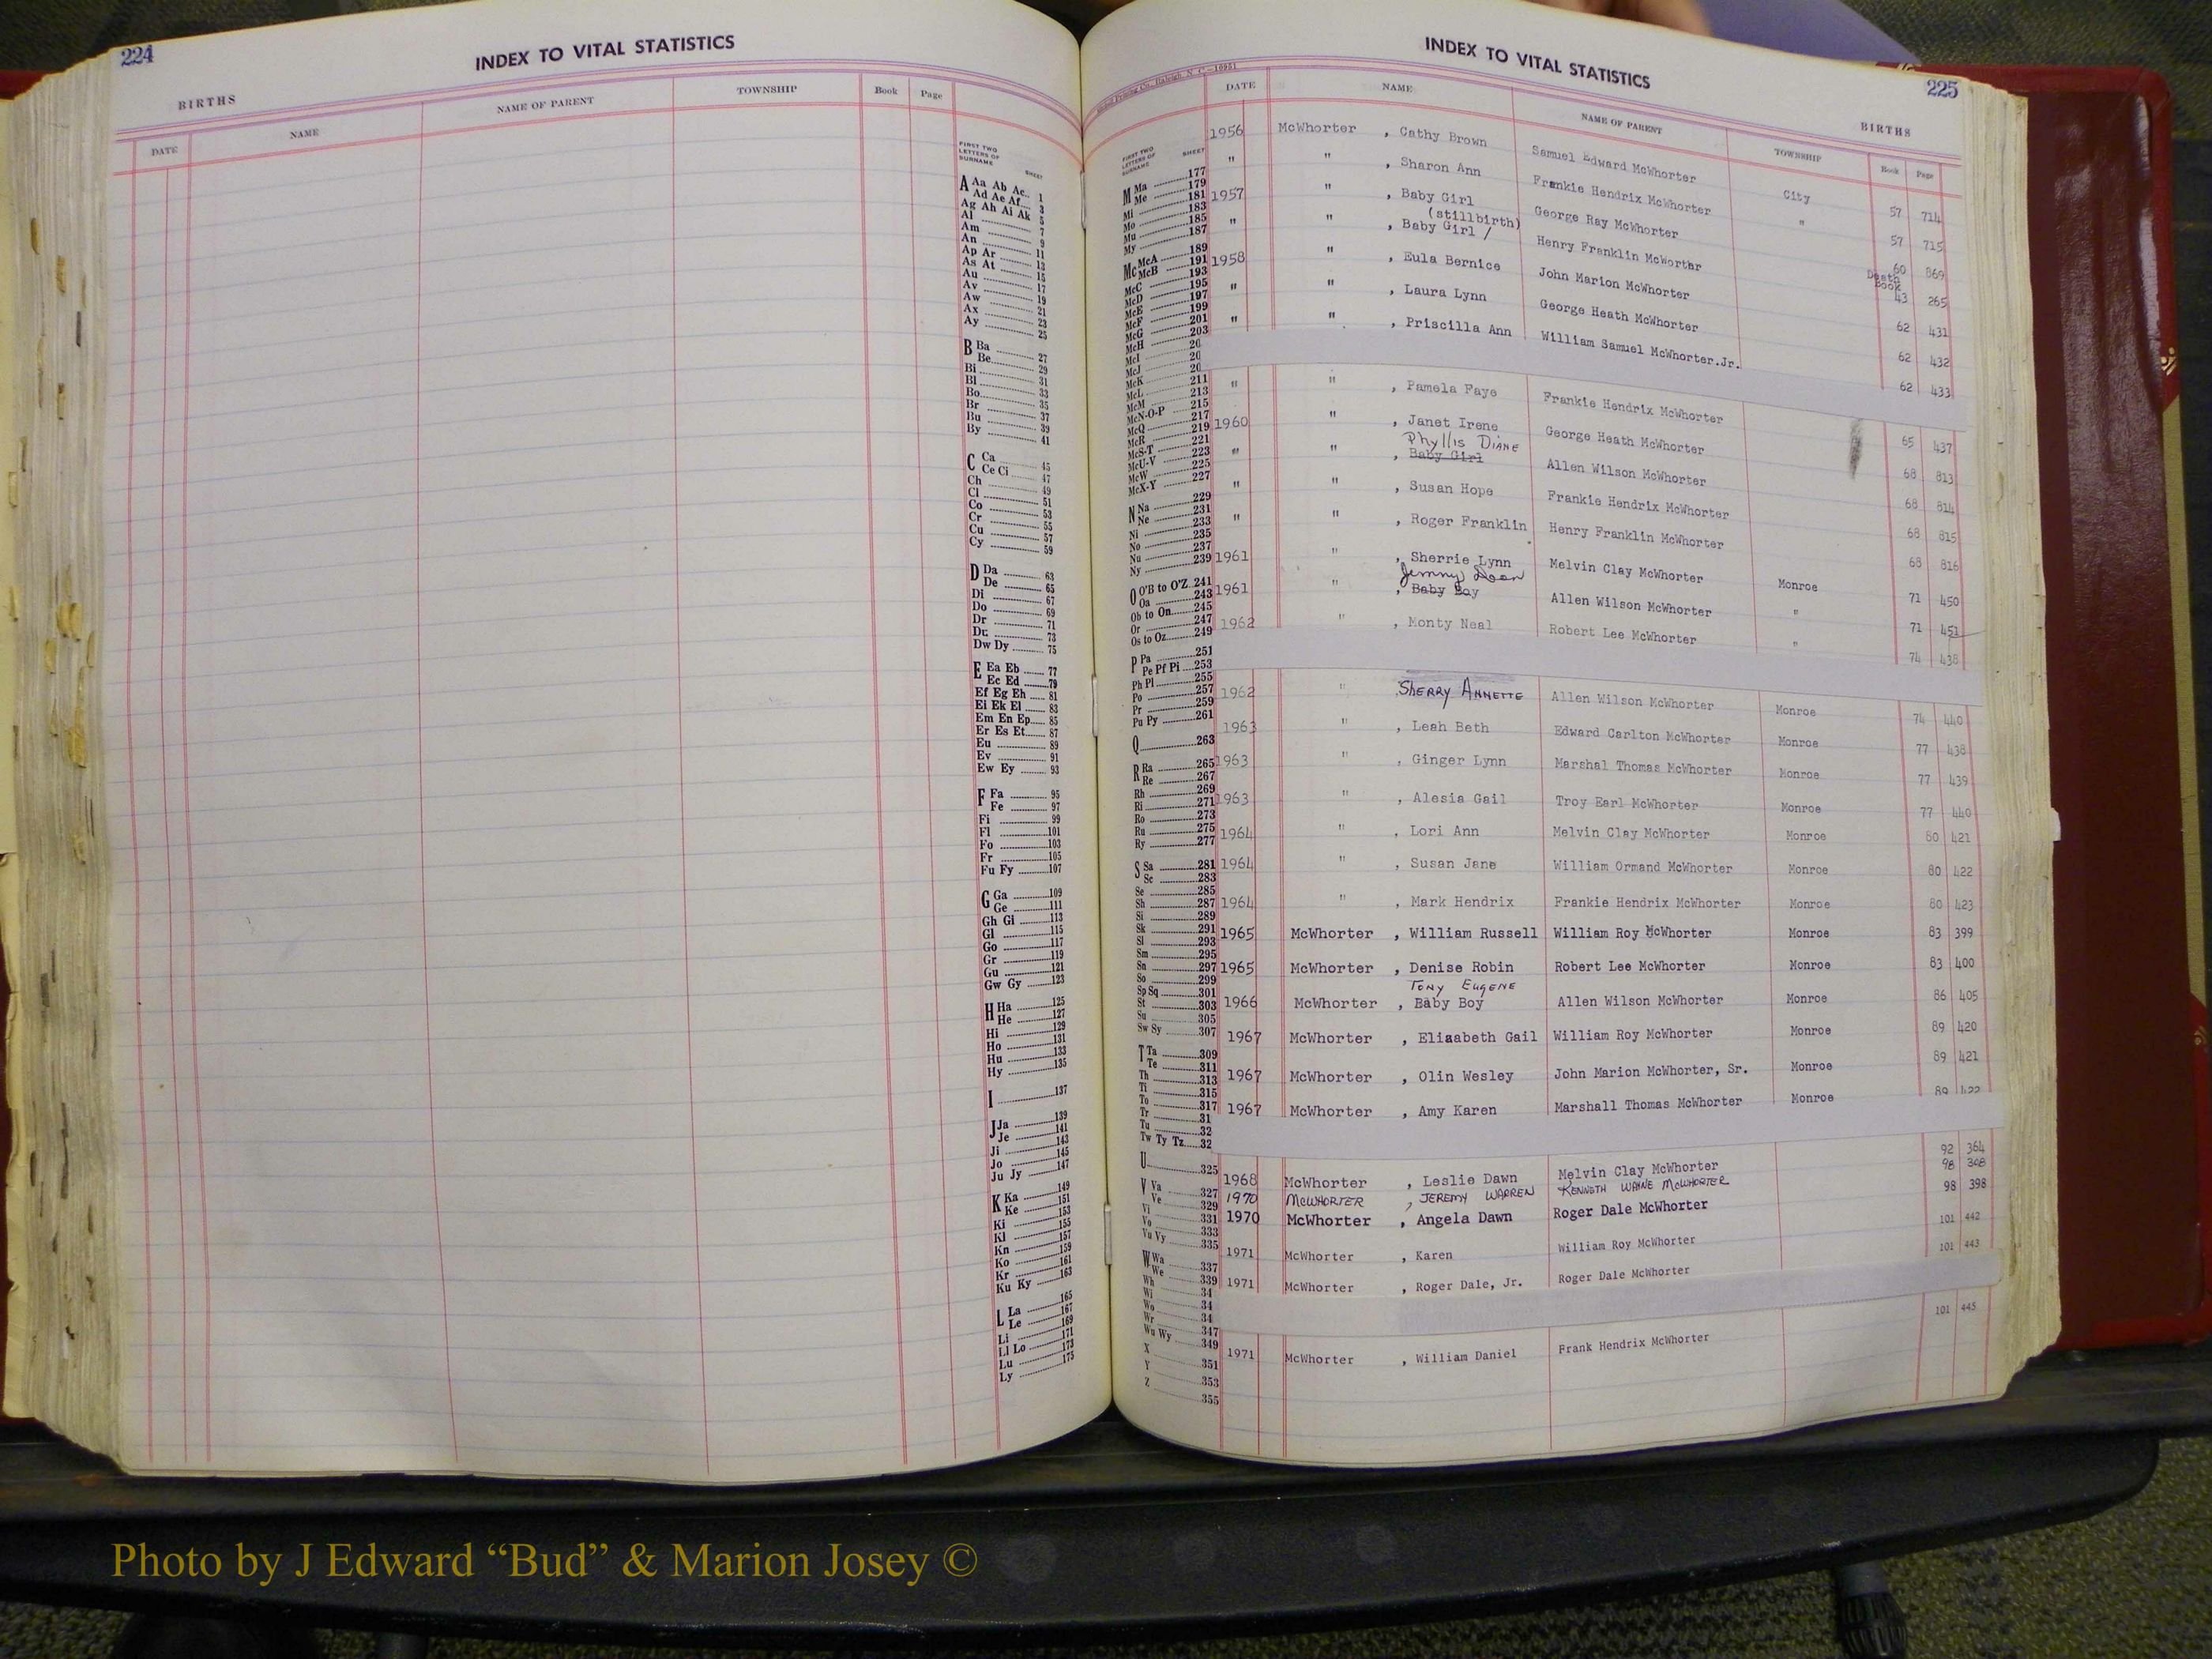 224
INDEX TO VITAL STATISTICS
BIRTHS
DATE NAME NAME OF PARENT TOWNSHIP Book Page
FIRST TWO LETTERS OF SURNAME SHEET
A Aa Ab Ac 1
Ad Ae Af 3
Ag Ah Ai Ak 5
Al 7
Am 9
An 11
Ap Ar 13
As At 15
Au 17
Av 19
Aw 21
Ax 23
Ay 25
B Ba 27
Be 29
Bi 31
Bl 33
Bo 35
Br 37
Bu 39
By 41
C Ca 45
Ce Ci 47
Ch 49
Cl 51
Co 53
Cr 55
Cu 57
Cy 59
D Da 63
De 65
Di 67
Do 69
Dr 71
Du 73
Dw Dy 75
E Ea Eb 77
Ec Ed 79
Ef Eg Eh 81
Ei Ek El 83
Em En Ep 85
Er Es Et 87
Eu 89
Ev 91
Ew Ey 93
F Fa 95
Fe 97
Fi 99
Fl 101
Fo 103
Fr 105
Fu Fy 107
G Ga 109
Ge 111
Gh Gi 113
Gl 115
Go 117
Gr 119
Gu 121
Gw Gy 123
H Ha 125
He 127
Hi 129
Ho 131
Hu 133
Hy 135
I 137
J Ja 139
Je 141
Ji 143
Jo 145
Ju Jy 147
K Ka 149
Ke 151
Ki 153
Kl 155
Kn 157
Ko 159
Kr 161
Ku Ky 163
L La 165
Le 167
Li 169
Ll Lo 171
Lu 173
Ly 175
INDEX TO VITAL STATISTICS
225
BIRTHS
DATE NAME NAME OF PARENT TOWNSHIP Book Page
FIRST TWO LETTERS OF SURNAME SHEET
M Ma 177
Me 179
Mi 181
Mo 183
Mu 185
My 187
Mc McA 189
McB 191
McC 193
McD 195
McE 197
McF 199
McG 201
McH 203
McI 20
McJ 20
McK 20
McL 211
McM 213
McN-O-P 215
McQ 217
McR 219
McS-T 221
McU-V 223
McW 225
McX-Y 227
N Na 229
Ne 231
Ni 233
No 235
Nu 237
Ny 239
O O'B to O'Z 241
Oa 243
Ob to On 245
Or 247
Os to Oz 249
P Pa 251
Pe Pf Pi 253
Ph Pl 255
Po 257
Pr 259
Pu Py 261
Q 263
R Ra 265
Re 267
Rh 269
Ri 271
Ro 273
Ru 275
Ry 277
S Sa 281
Sc 283
Se 285
Sh 287
Si 289
Sk 291
Sl 293
Sm 295
Sn 297
So 299
Sp Sq 301
St 303
Su 305
Sw Sy 307
T Ta 309
Te 311
Th 313
Ti 315
To 317
Tr 31
Tu 32
Tw Ty Tz 32
U 325
V Va 327
Ve 329
Vi 331
Vo 333
Vu Vy 335
W Wa 337
We 339
Wh 34
Wi 34
Wo 34
Wr 347
Wu Wy 349
X 351
Y 353
Z 355
1956 McWhorter , Cathy Brown Samuel Edward McWhorter City 57 714
" " , Sharon Ann Frankie Hendrix McWhorter " 57 715
1957 " , Baby Girl George Ray McWhorter 60 869
(stillbirth)
" " , Baby Girl / Henry Franklin McWorthr Death Book 43 265
1958 " , Eula Bernice John Marion McWhorter 62 431
" " , Laura Lynn George Heath McWhorter 62 432
" " , Priscilla Ann William Samuel McWhorter.Jr. 62 433
" " , Pamela Faye Frankie Hendrix McWhorter 65 437
1960 " , Janet Irene George Heath McWhorter 68 813
Phyllis Diane
" " , Baby Girl Allen Wilson McWhorter 68 814
" " , Susan Hope Frankie Hendrix McWhorter 68 815
" " , Roger Franklin Henry Franklin McWhorter 68 816
1961 " , Sherrie Lynn Melvin Clay McWhorter Monroe 71 450
Jemmy Dean
1961 " , Baby Boy Allen Wilson McWhorter " 71 451
1962 " , Monty Neal Robert Lee McWhorter " 74 438
1962 " , Sherry Annette Allen Wilson McWhorter Monroe 74 440
1963 " , Leah Beth Edward Carlton McWhorter Monroe 77 438
1963 " , Ginger Lynn Marshal Thomas McWhorter Monroe 77 439
1963 " , Alesia Gail Troy Earl McWhorter Monroe 77 440
1964 " , Lori Ann Melvin Clay McWhorter Monroe 80 421
1964 " , Susan Jane William Ormand McWhorter Monroe 80 422
1964 " , Mark Hendrix Frankie Hendrix McWhorter Monroe 80 423
1965 McWhorter , William Russell William Roy McWhorter Monroe 83 399
1965 McWhorter , Denise Robin Robert Lee McWhorter Monroe 83 400
Tony Eugene
1966 McWhorter , Baby Boy Allen Wilson McWhorter Monroe 86 405
1967 McWhorter , Elizabeth Gail William Roy McWhorter Monroe 89 420
1967 McWhorter , Olin Wesley John Marion McWhorter, Sr. Monroe 89 421
1967 McWhorter , Amy Karen Marshall Thomas McWhorter Monroe 89 422
1968 McWhorter , Leslie Dawn Melvin Clay McWhorter 92 364
1970 McWhorter , Jeremy Warren Kenneth Wayne McWhorter 98
1970 McWhorter , Angela Dawn Roger Dale McWhorter 98 398
1971 McWhorter , Karen William Roy McWhorter 101 442
1971 McWhorter , Roger Dale, Jr. Roger Dale McWhorter 101 443
1971 McWhorter , William Daniel Frank Hendrix McWhorter 101 445
Photo by J Edward “Bud” & Marion Josey ©